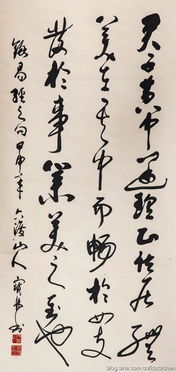 君子黄中通理正位居體
美在其中而暢於四支
發於事業美之至也
錄易經之句甲申年山人書